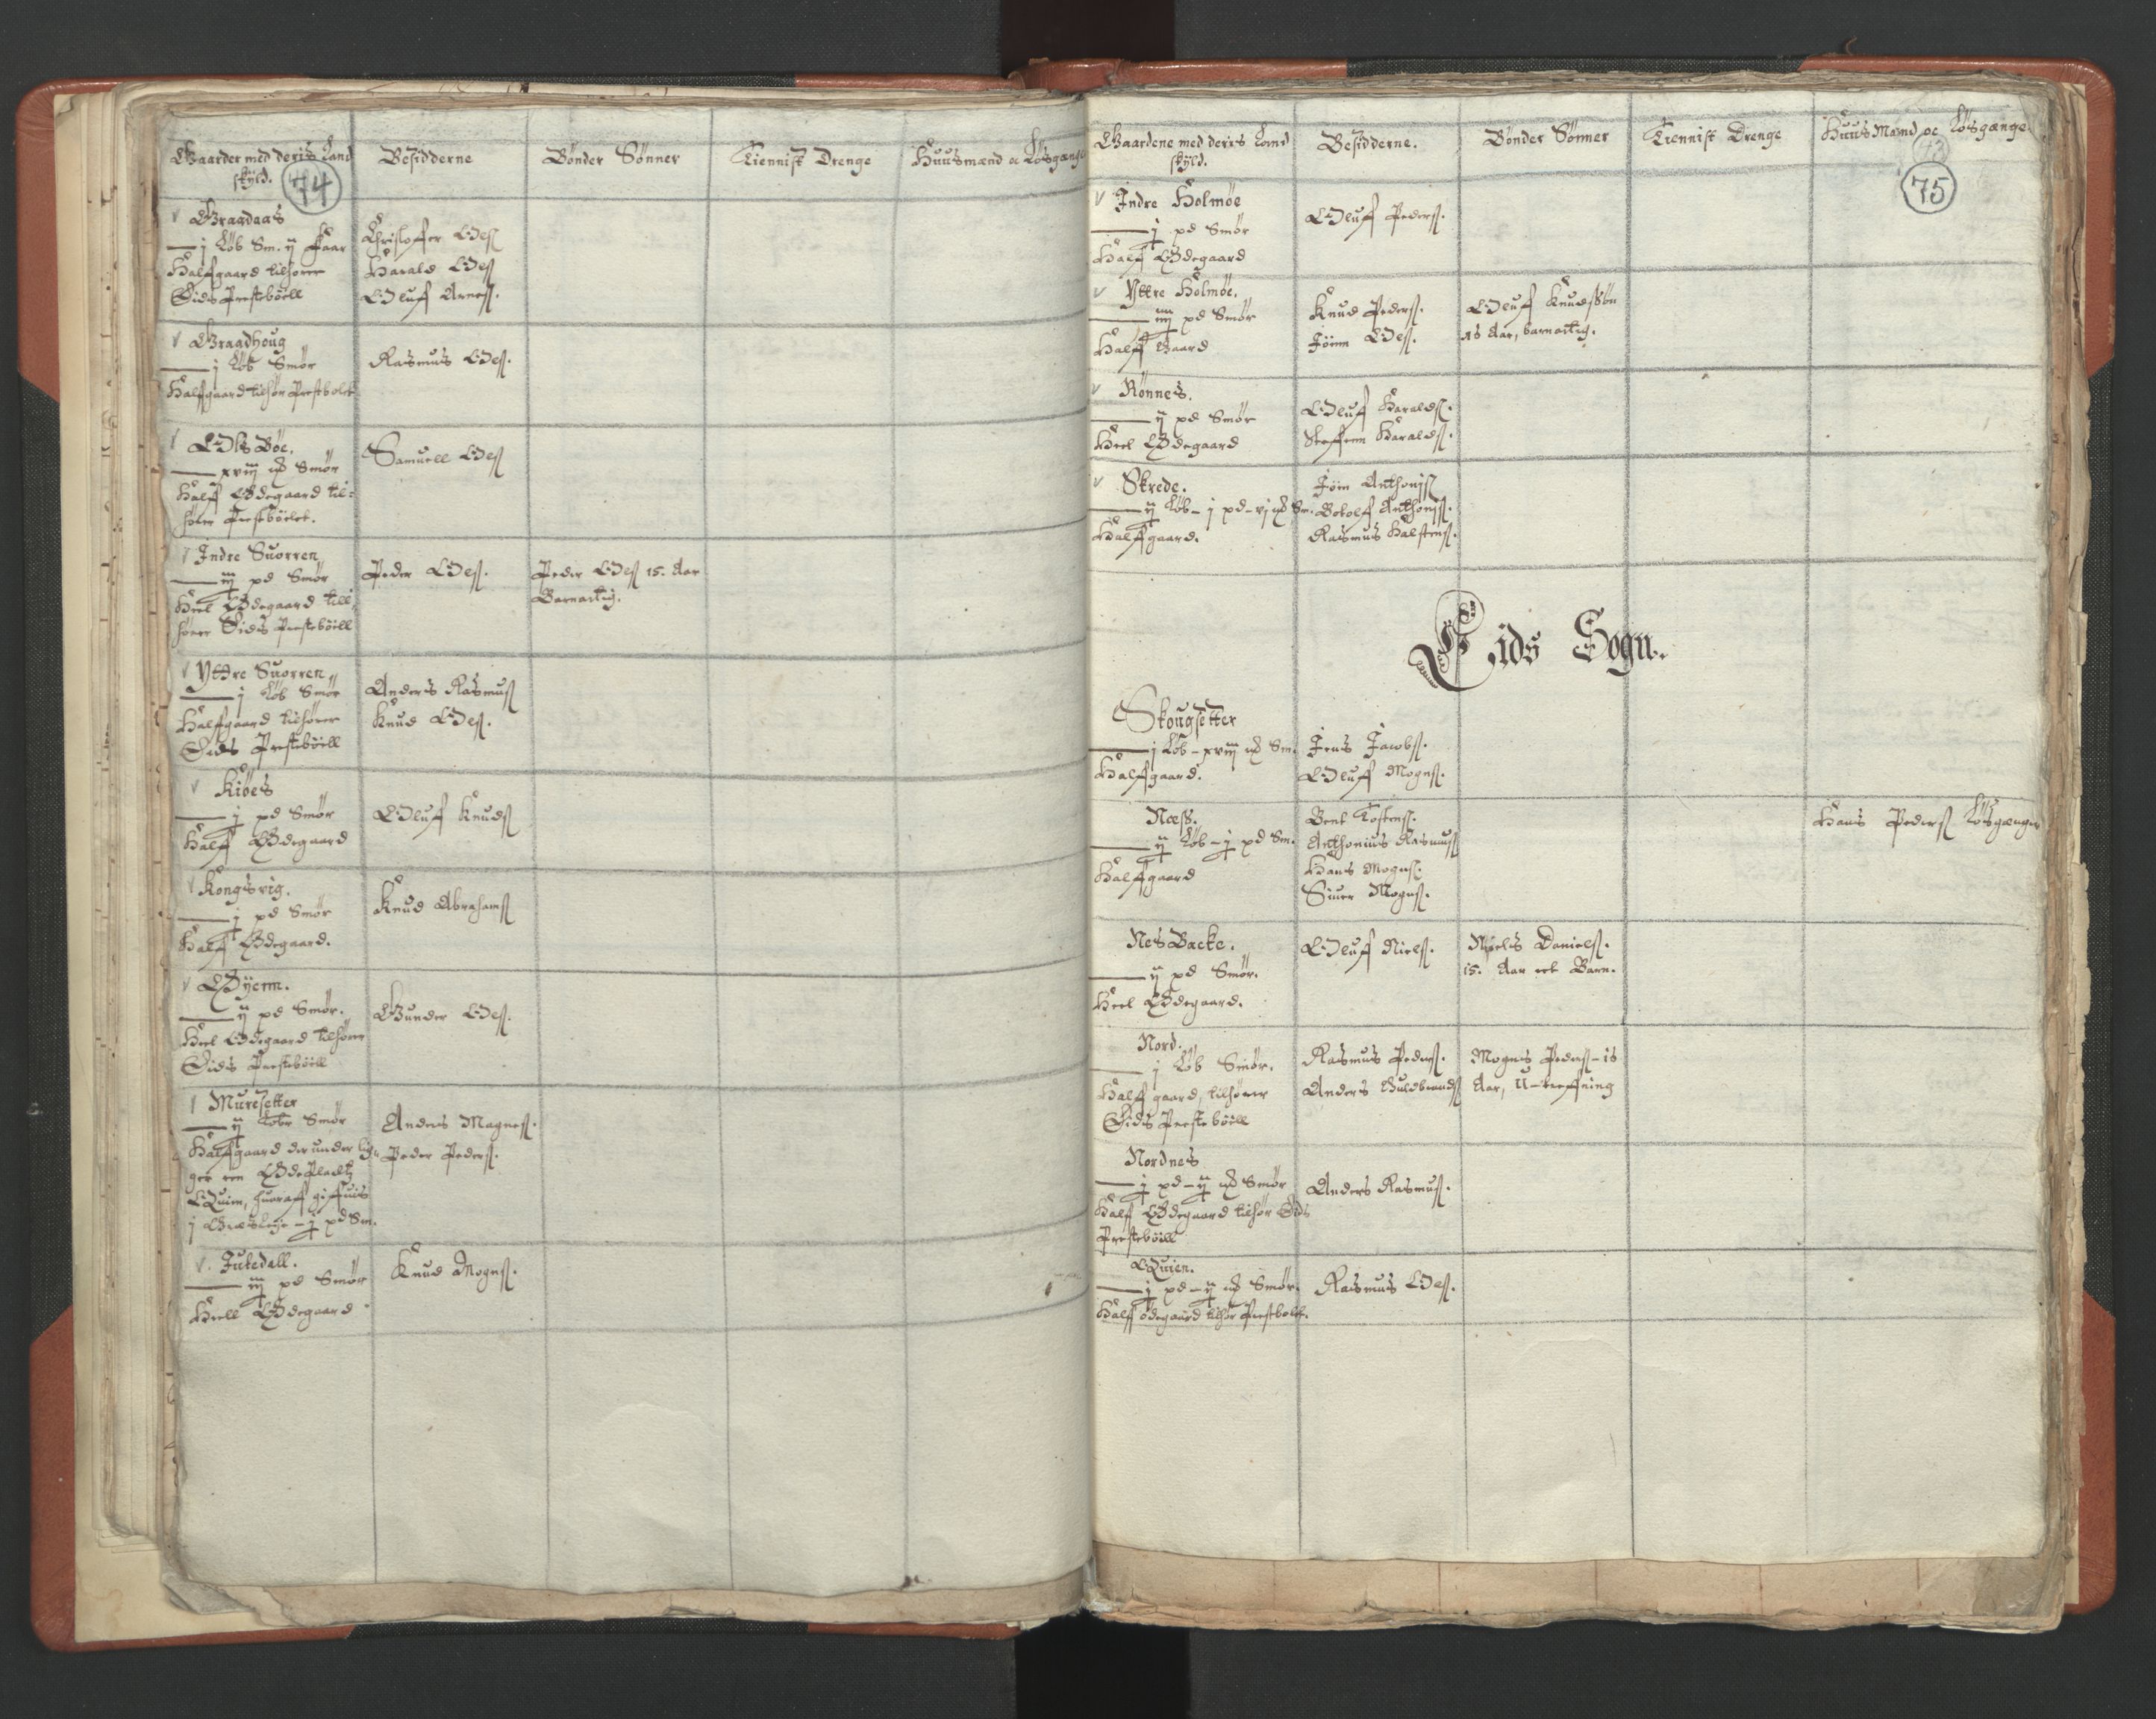 Gaarder med deris Land
skyld.
74
Besidderne
Bønder Sønner
Tiennist Drenge
Huusmænd oc Løsgænge
Graadaas
j Løb Sm. ij Faar
Halfgaard tilhører
Eids Prestebøell
Christoffer Oelß
Harald Oelß
Oluff Arneß.
Graadhoug
j Løb Smør
Halfgaard tilhør Prestbolet
Rasmus Oelß.
Ols Bøe.
xviij Smør
Half Ødegaard til-
hører Prestebøelet.
Samuell Oelß
Indre Suorren
iij pd Smør
Heel Ødegaard till-
hører Eids Prestebøell
Peder Oelß.
Peder Oelß 15. Aar
Barnactig.
Yttre Suorren
j Løb Smør
Halfgaard tilhører
Eids Prestebøell
Anders Rasmuß
Knud Oelß.
Kiøes
j pd Smør
Half Ødegaard
Oluff Knudß
Kongsvig.
j pd Smør
Half Ødegaard.
Knud Abrahamß
Øyenn.
ij pd Smør.
Heel Ødegaard tilhører
Eids Prestebøell
Gunder Oelß.
Muresetter
ij Løbe Smør
Halfgaard der under lig-
ger een Øde Pladtz
Quien, huoraff giffuis
j Græsleye - j pd Sm.
Anders Magneß.
Peder Pederß.
Julsdall.
iij pd Smør
Heell Ødegaard
Knud Mogenß.
Gaardene med deris Land
skyld.
Besidderne.
Bønder Sønner
Tiennist Drenge
Huus Mænd oc Løsgænge
75
Indre Holmøe
j pd Smør
Half Ødegaard
Oluff Pederß.
Yttre Holmøe.
iiij pd Smør
Halff Gaard
Knud Pederß.
Jöenn Oelß.
Oluff Knudssøn
15 Aar, barnactig.
Rønnes.
ij pd Smør
Heel Ødegaard
Oluff Haraldß.
Steffenn Haraldß.
Skrede.
ij Løb - j pd - vj Sm.
Halfgaard.
Jöen Anthonjß
Botolf Anthonjß.
Rasmus Halstenß.
Eids Sogn.
Skougsetter
j Løb - xviij Sm.
Halfgaard.
Jens Jacobß.
Oluff Mogenß.
Næss.
ij Løb - j pd Sm.
Halfgaard
Bent Tostenß.
Anthonius Rasmuß
Hans Mogenß.
Siuer Mogenß.
Hans Pederß Løsgænger
Nes Backe.
ij pd Smør.
Heel Ødegaard.
Oluff Nielß.
Niels Danielß.
15. Aar ret Barn.
Nord.
j Løb Smør.
Half gaard, tilhører
Eids Prestebøell
Rasmus Pederß.
Anders Guldbrandß
Mogns Pederß - 18
Aar,
Nordnes
j pd - ij Smør
Half Ødegaard tilhør Eids
Prestebøell
Anders Rasmuß.
Quien.
j pd - ij Smør.
Halff ødegaard tilhør Prestbolet.
Rasmus Oelß.